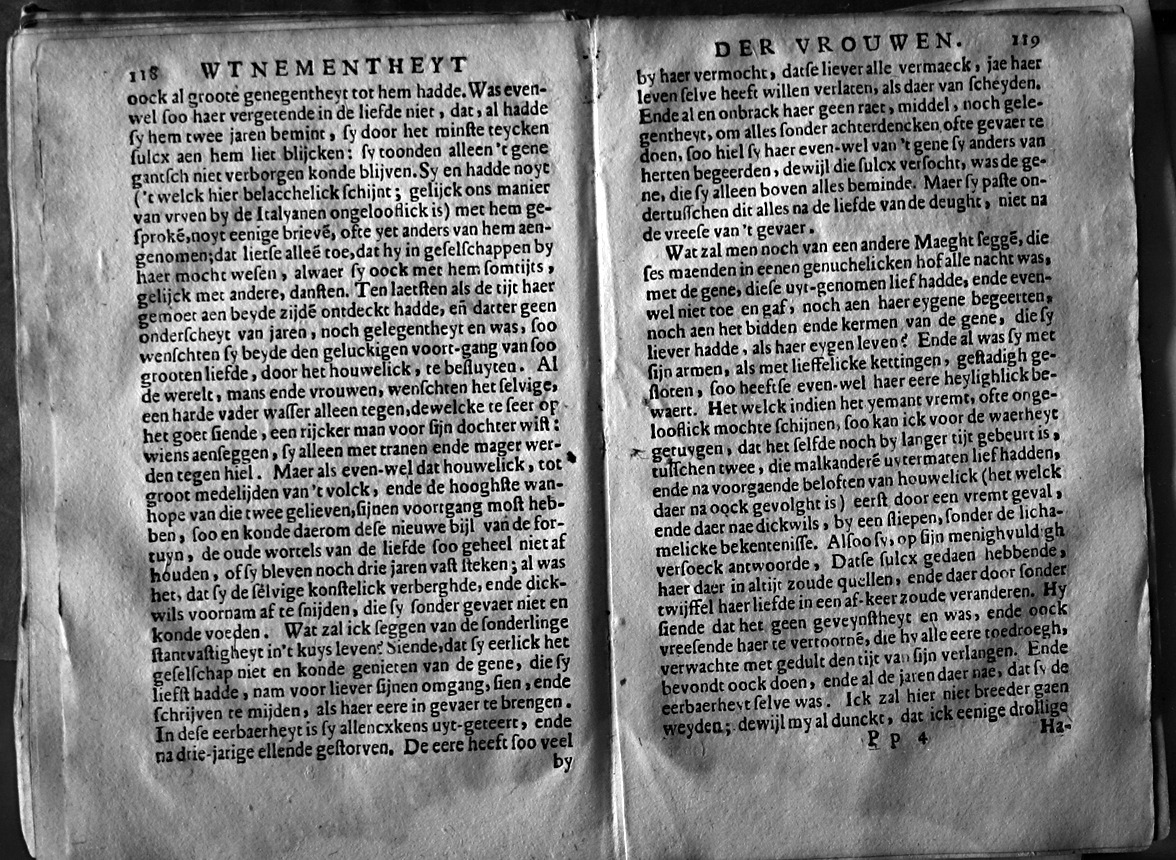 118 WTNEMENTHEYT
oock al groote genegentheyt tot hem hadde. Was even-
wel ſoo haer vergetende in de liefde niet, dat, al hadde
ſy hem twee jaren bemint, ſy door het minſte teycken
ſulcx aen hem liet blijcken: ſy toonden alleen 't gene
gantſch niet verborgen konde blijven. Sy en hadde noyt
('t welck hier belacchelick ſchijnt; gelijck ons manier
van vryen by de Italyanen ongelooflick is) met hem ge-
ſprokē, noyt eenige brievē, ofte yet anders van hem aen-
genomen; dat lietſe alleē toe, dat hy in geſelſchappen by
haer mocht weſen, alwaer ſy oock met hem ſomtijts,
gelijck met andere, danſten. Ten laetſten als de tijt haer
gemoet aen beyde zijdē ontdeckt hadde, eñ datter geen
onderſcheyt van jaren, noch gelegentheyt en was, ſoo
wenſchten ſy beyde den geluckigen voort-gang van ſoo
grooten liefde, door het houwelick, te beſluyten. Al
de werelt, mans ende vrouwen, wenſchten het ſelvige,
een harde vader waſſer alleen tegen, dewelcke te ſeer op
het goet ſiende, een rijcker man voor ſijn dochter wiſt:
wiens aenſeggen, ſy alleen met tranen ende mager wer-
den tegen hiel. Maer als even-wel dat houwelick, tot
groot medelijden van 't volck, ende de hooghſte wan-
hope van die twee gelieven, ſijnen voortgang moſt heb-
ben, ſoo en konde daerom deſe nieuwe bijl van de for-
tuyn, de oude wortels van de liefde ſoo geheel niet af
houden, of ſy bleven noch drie jaren vaſt ſteken; al was
het, dat ſy de ſelvige konſtelick verberghde, ende dick-
wils voornam af te ſnijden, die ſy ſonder gevaer niet en
konde voeden. Wat zal ick ſeggen van de ſonderlinge
ſtantvaſtigheyt in 't kuys leven? Siende, dat ſy eerlick het
geſelſchap niet en konde genieten van de gene, die ſy
liefſt hadde, nam voor liever ſijnen omgang, ſien, ende
ſchrijven te mijden, als haer eere in gevaer te brengen.
In deſe eerbaerheyt is ſy allencxkens uyt-geteert, ende
na drie-jarige ellende geſtorven. De eere heeft ſoo veel
by
DER VROUWEN. 119
by haer vermocht, datſe liever alle vermaeck, jae haer
leven ſelve heeft willen verlaten, als daer van ſcheyden.
Ende al en onbrack haer geen raet, middel, noch gele-
gentheyt, om alles ſonder achterdencken ofte gevaer te
doen, ſoo hiel ſy haer even-wel van 't gene ſy anders van
herten begeerden, dewijl die ſulcx verſocht, was de ge-
ne, die ſy alleen boven alles beminde. Maer ſy paſte on-
dertuſſchen dit alles na de liefde van de deught, niet na
de vreeſe van 't gevaer.
Wat zal men noch van een andere Maeght ſeggē, die
ſes maenden in eenen genuchelicken hof alle nacht was,
met de gene, dieſe uyt-genomen lief hadde, ende even-
wel niet toe en gaf, noch aen haer eygene begeerten,
noch aen het bidden ende kermen van de gene, die ſy
liever hadde, als haer eygen leven? Ende al was ſy met
ſijn armen, als met lieffelicke kettingen, geſtadigh ge-
ſloten, ſoo heeftſe even-wel haer eere heylighlick be-
waert. Het welck indien het yemant vremt, ofte onge-
looflick mochte ſchijnen, ſoo kan ick voor de waerheyt
getuygen, dat het ſelfde noch by langer tijt gebeurt is,
tuſſchen twee, die malkanderē uytermaten lief hadden,
ende na voorgaende beloften van houwelick (het welck
daer na oock gevolght is) eerſt door een vremt geval,
ende daer nae dickwils, by een ſliepen, ſonder de licha-
melicke bekenteniſſe. Alſoo ſy, op ſijn menighvuldigh
verſoeck antwoorde, Datſe ſulcx gedaen hebbende,
haer daer in altijt zoude quellen, ende daer door ſonder
twijffel haer liefde in een af-keer zoude veranderen. Hy
ſiende dat het geen geveynſtheyt en was, ende oock
vreeſende haer te vertoornē, die hy alle eere toedroegh,
verwachte met gedult den tijt van ſijn verlangen. Ende
bevondt oock doen, ende al de jaren daer nae, dat ſy de
eerbaerheyt ſelve was. Ick zal hier niet breeder gaen
weyden; dewijl my al dunckt, dat ick eenige drollige
P p 4 Ha-